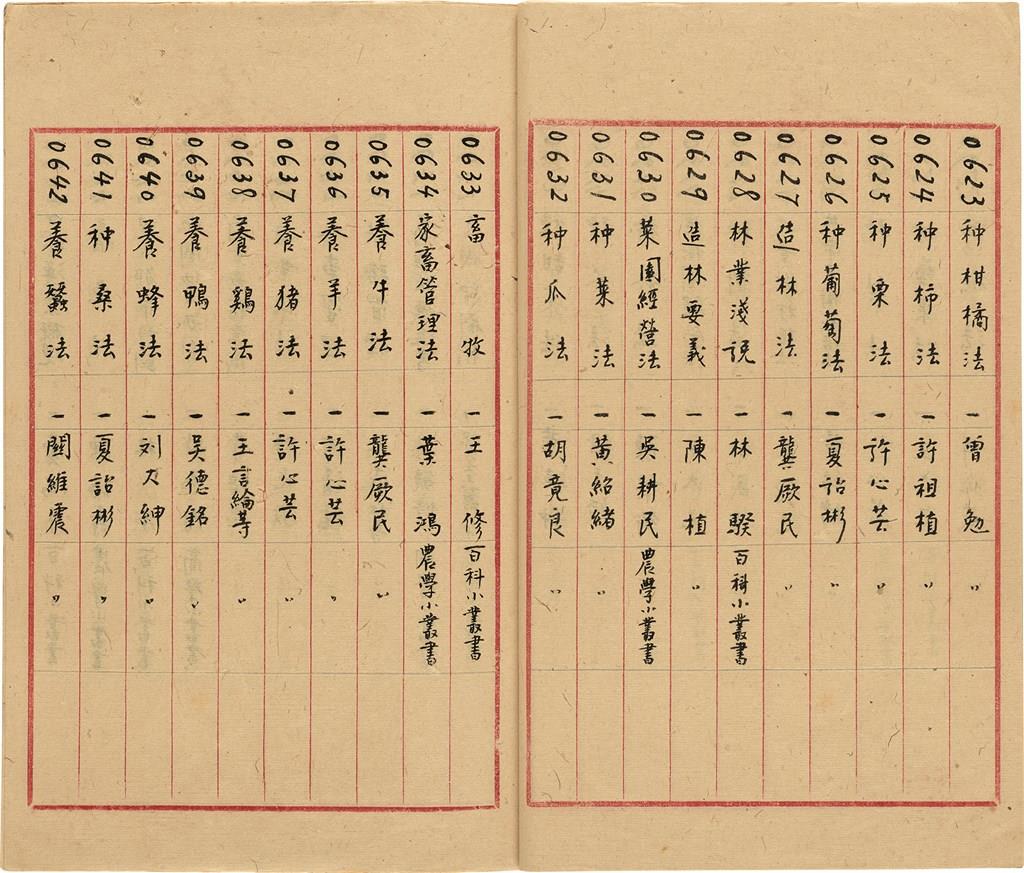 0623 种柑橘法 一 曾勉 〃
0624 种柿法 一 許祖植 〃
0625 种栗法 一 許心芸 〃
0626 种葡萄法 一 夏詒彬 〃
0627 造林法 一 龔厥民 〃
0628 林業淺說 一 林騤 百科小叢書
0629 造林要義 一 陳植 〃
0630 菜園經營法 一 吳耕民 農學小叢書
0631 种菜法 一 黃紹緒 〃
0632 种瓜法 一 胡竟良 〃
0633 畜牧 一 王修 百科小叢書
0634 家畜管理法 一 葉鴻 農學小叢書
0635 養牛法 一 龔厥民 〃
0636 養羊法 一 許心芸 〃
0637 養猪法 一 許心芸 〃
0638 養鷄法 一 王言綸等 〃
0639 養鴨法 一 吴德銘 〃
0640 養蜂法 一 刘大紳 〃
0641 种桑法 一 夏詒彬 〃
0642 養蠶法 一 關維震 〃